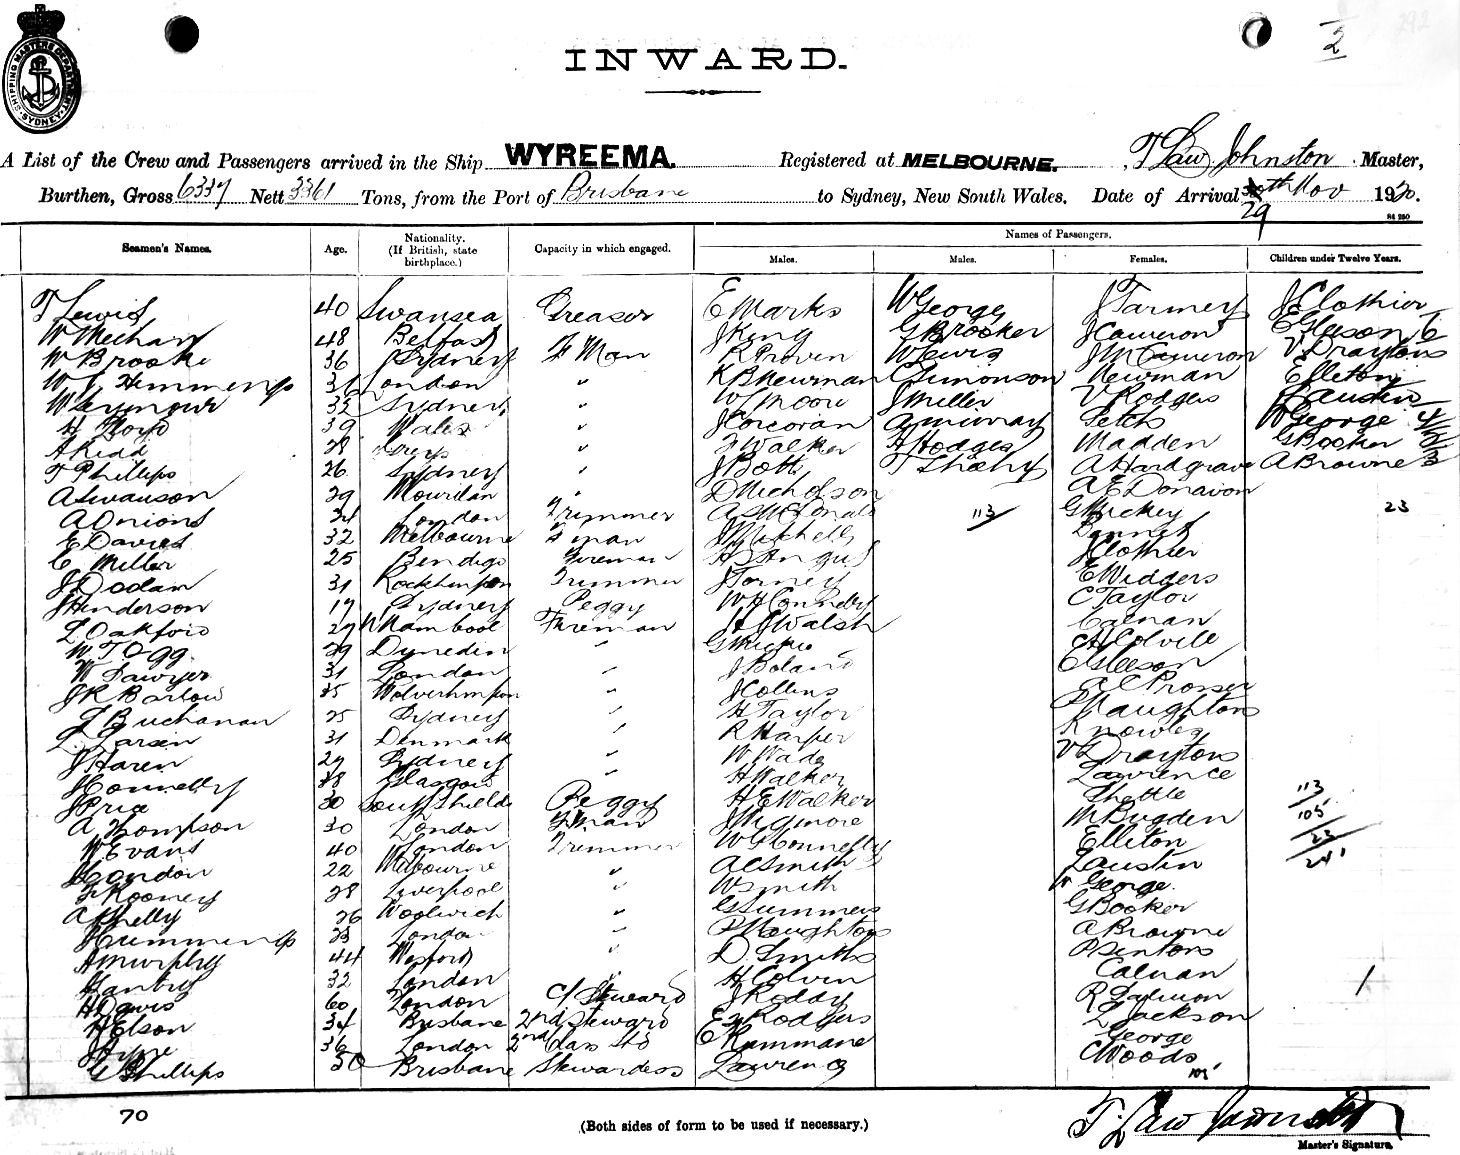 SHIPPING MASTERS DEPARTMENT SYDNEY
INWARD.
A List of the Crew and Passengers arrived in the Ship WYREEMA. Registered at MELBOURNE. , T Law Johnston Master,
Burthen, Gross 6337 Nett 3361 Tons, from the Port of Brisbane to Sydney, New South Wales. Date of Arrival 29 Nov 1920.
Names of Passengers.
Seamen's Names. Age. Nationality. (If British, state birthplace.) Capacity in which engaged. Males. Males. Females. Children under Twelve Years.
T Lewis 40 Swansea Greaser E Marks W George J Tarmey J Clothier
W Mechan 48 Belfast J King G Brooker J Cameron E Gleeson 6
W Brooke 36 Sydney F Man R Proven W Lewis J M Cameron V Draytons
31 London " K B Newman C Simonson Newman Elleton
W Seymour 32 Sydney " W Moore J Miller V Rodgers L Austin
H Lloyd 39 Wales " J Corcoran A Murray Petch W George
A Kidd 28 " F Walker H Hodges Madden G Booker
T Phillips 26 Sydney " J Bott A Hardgrave A Browne
A Swanson 29 " D Nicholson A E Donavon
A Onions London Trimmer G Mickey 23
113
E Davies 32 Melbourne F man J Mitchell Bennet
C Miller 25 Bendigo Fireman H S Angus J Clothier
J Dodan 31 Trimmer J Torney E Widgers
J Henderson 19 Sydney Peggy W H Connelly C Taylor
L Oakford 27 Fireman H J Walsh Calnan
W T Ogg 29 Dunedin " G Mickie H Colvill
W Sawyer 31 London " J Boland E Gleeson
J R Barlow 35 " J Collins A C Prosser
L Buchanan 25 Sydney " H Taylor P Naughtons
L Larsen 31 Denmark " R Harper Knowles
J Haren 29 Sydney " W Wade V Draytons
J Connelly 38 Glasgow " H Walker Lawrence
J Price 30 South Shields Peggy H E Walker Shettle 113
A Thompson 30 London F man W Bugden 105
W Evans 40 London Trimmer W G Connelly Elleton 23
J Condon 22 Melbourne " A C Smith L Austin 241
F Rooney 28 Liverpool " W Smith W George
A Shelly 26 Woolwich " G Summers G Booker
J Cummings 23 London " P Naughtons A Browne
A Murphy 44 Wexford " D Smiths
32 London " H Colvin Calnan
H Davis 60 London C/ Steward J Roddy R Salmon
H Elson 34 Brisbane 2nd Steward E V Rodgers L Jackson
J Pyne 36 London 2nd Class Std George
G Phillips 50 Brisbane Stewardess Lawrence C Woods
105
70
(Both sides of form to be used if necessary.)
T. Law Johnston
Master's Signature.